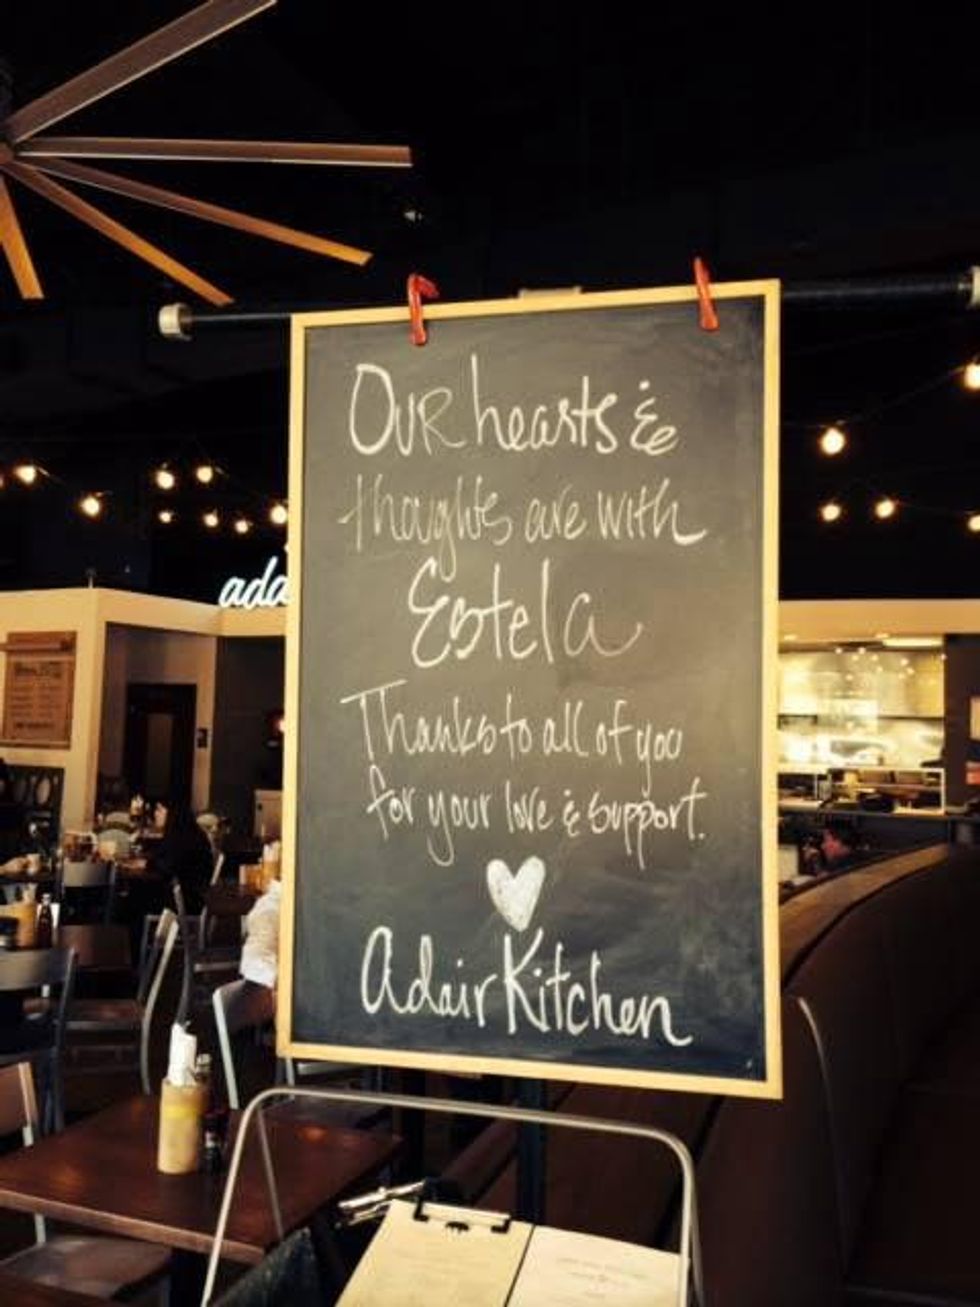 Our hearts &
thoughts are with
Estela
Thanks to all of you
for your love & support.
Adair Kitchen
ada